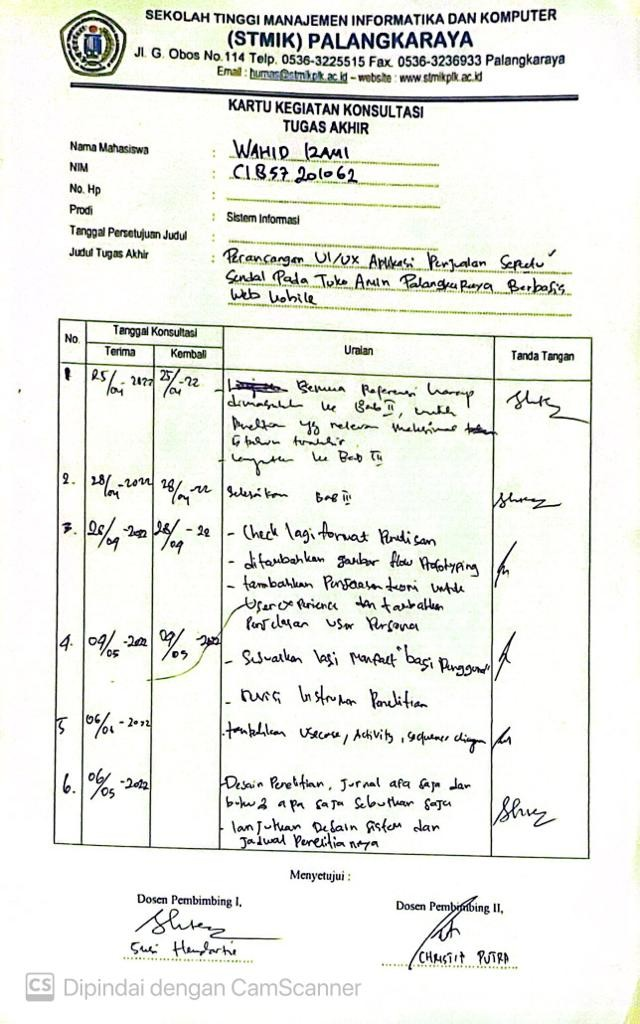 SEKOLAH TINGGI MANAJEMEN INFORMATIKA DAN KOMPUTER
(STMIK) PALANGKARAYA
Jl. G. Obos No.114 Telp. 0536-3225515 Fax. 0536-3236933 Palangkaraya
Email : humas@stmikplk.ac.id – website : www.stmikplk.ac.id
KARTU KEGIATAN KONSULTASI
TUGAS AKHIR
Nama Mahasiswa : WAHID IZAMI
NIM : C1857201062
No. Hp :
Prodi : Sistem Informasi
Tanggal Persetujuan Judul :
Judul Tugas Akhir : Perancangan UI/UX Aplikasi Penjualan Sepatu
Sendal Pada Toko Amin Palangkaraya Berbasis
Web Mobile
No. Tanggal Konsultasi Uraian Tanda Tangan
Terima Kembali
1 25/04-2022 25/04-22 - Semua Referensi harap
dimasukkan ke Bab II, untuk
Penelitian yg relevan maksimal
5 tahun terakhir
- Lanjutkan ke Bab III
2. 28/04-2022 28/04-22 Selesaikan Bab III
3. 28/04-2022 28/04-22 - Check lagi format Penulisan
- ditambahkan gambar flow Prototyping
- tambahkan Penjelasan teori untuk
User experience dan tambahkan
Penjelasan User Persona
4. 09/05-2022 09/05-2022 - Sesuaikan lagi Manfaat "bagi Pengguna"
- Revisi Instrumen Penelitian
5 06/ -2022 - tambahkan Usecase, Activity, sequence diagram
6. 06/05-2022 - Desain Penelitian, Jurnal apa saja dan
buku2 apa saja sebutkan saja
- lanjutkan Desain sistem dan
Jadwal Penelitiannya
Menyetujui :
Dosen Pembimbing I, Dosen Pembimbing II,
Susi Hendartie CHRISTIT PUTRA
CS Dipindai dengan CamScanner